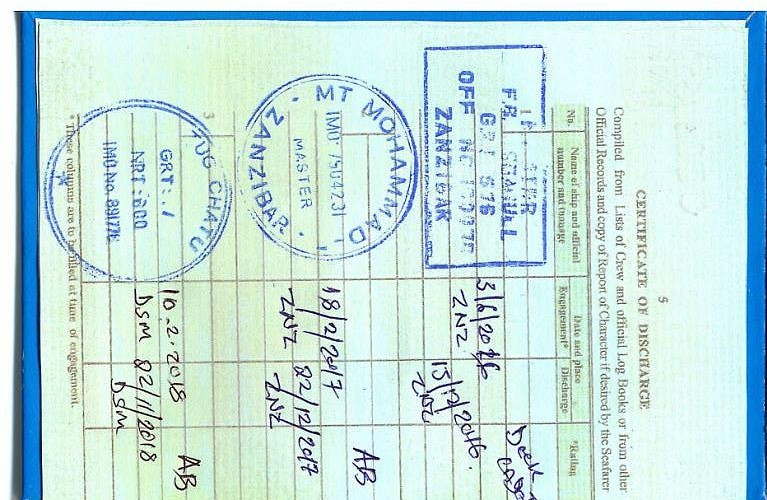 5
CERTIFICATE OF DISCHARGE
Compiled from Lists of Crew and official Log Books or from other
Official Records and copy of Report of Character if desired by the Seafarer
No.
Name of ship and official
number and tonnage
Date and place
Engagement*
Discharge
*Rating
GRT 576
OFF NO
ZANZIBAR
3/6/2016
ZNZ
13/12/2016.
ZNZ
Deck
MT MOHAMMAD
IMO 7504231
MASTER
ZANZIBAR
18/2/2017
ZNZ
22/12/2017
ZNZ
AB
3
TUG CHATU
GRT: 1
NRT: 600
IMO No.
10.2.2018
Dsm
22/11/2018
Dsm
AB
* These columns are to be filled at time of engagement.